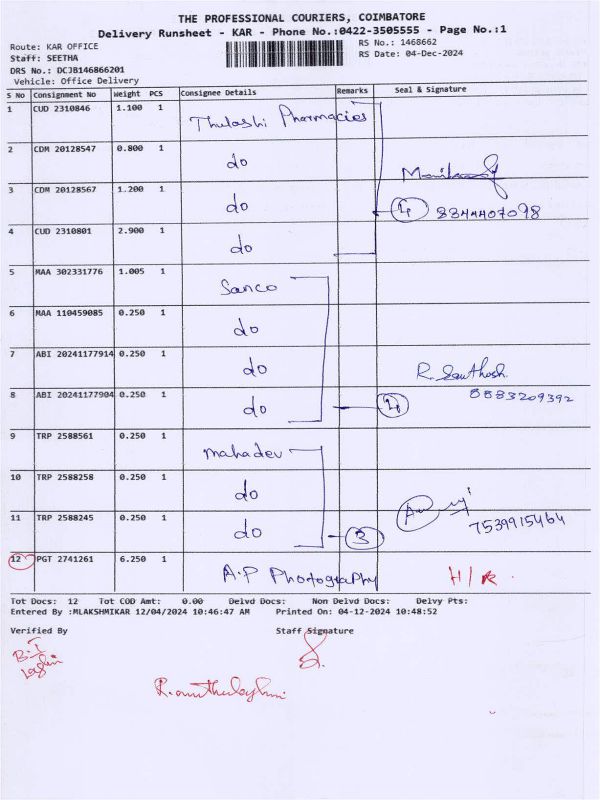 THE PROFESSIONAL COURIERS, COIMBATORE
Delivery Runsheet - KAR - Phone No.:0422-3505555 - Page No.:1
Route: KAR OFFICE
RS No.: 1468662
Staff: SEETHA
RS Date: 04-Dec-2024
DRS No.: DCJB146866201
Vehicle: Office Delivery
S No Consignment No Weight PCS Consignee Details Remarks Seal & Signature
1 CUD 2310846 1.100 1 Thulashi Pharmacies
2 CDM 20128547 0.800 1 do
3 CDM 20128567 1.200 1 do 4 8344407098
4 CUD 2310801 2.900 1 do
5 MAA 302331776 1.005 1 Sanco
6 MAA 110459085 0.250 1 do
7 ABI 20241177914 0.250 1 do R. Santhosh
8 ABI 20241177904 0.250 1 do 4 8883209392
9 TRP 2588561 0.250 1 mahadev
10 TRP 2588258 0.250 1 do
11 TRP 2588245 0.250 1 do 3 7539915464
12 PGT 2741261 6.250 1 A.P Photography H/R.
Tot Docs: 12 Tot COD Amt: 0.00 Delvd Docs: Non Delvd Docs: Delvy Pts:
Entered By :MLAKSHMIKAR 12/04/2024 10:46:47 AM Printed On: 04-12-2024 10:48:52
Verified By Staff Signature